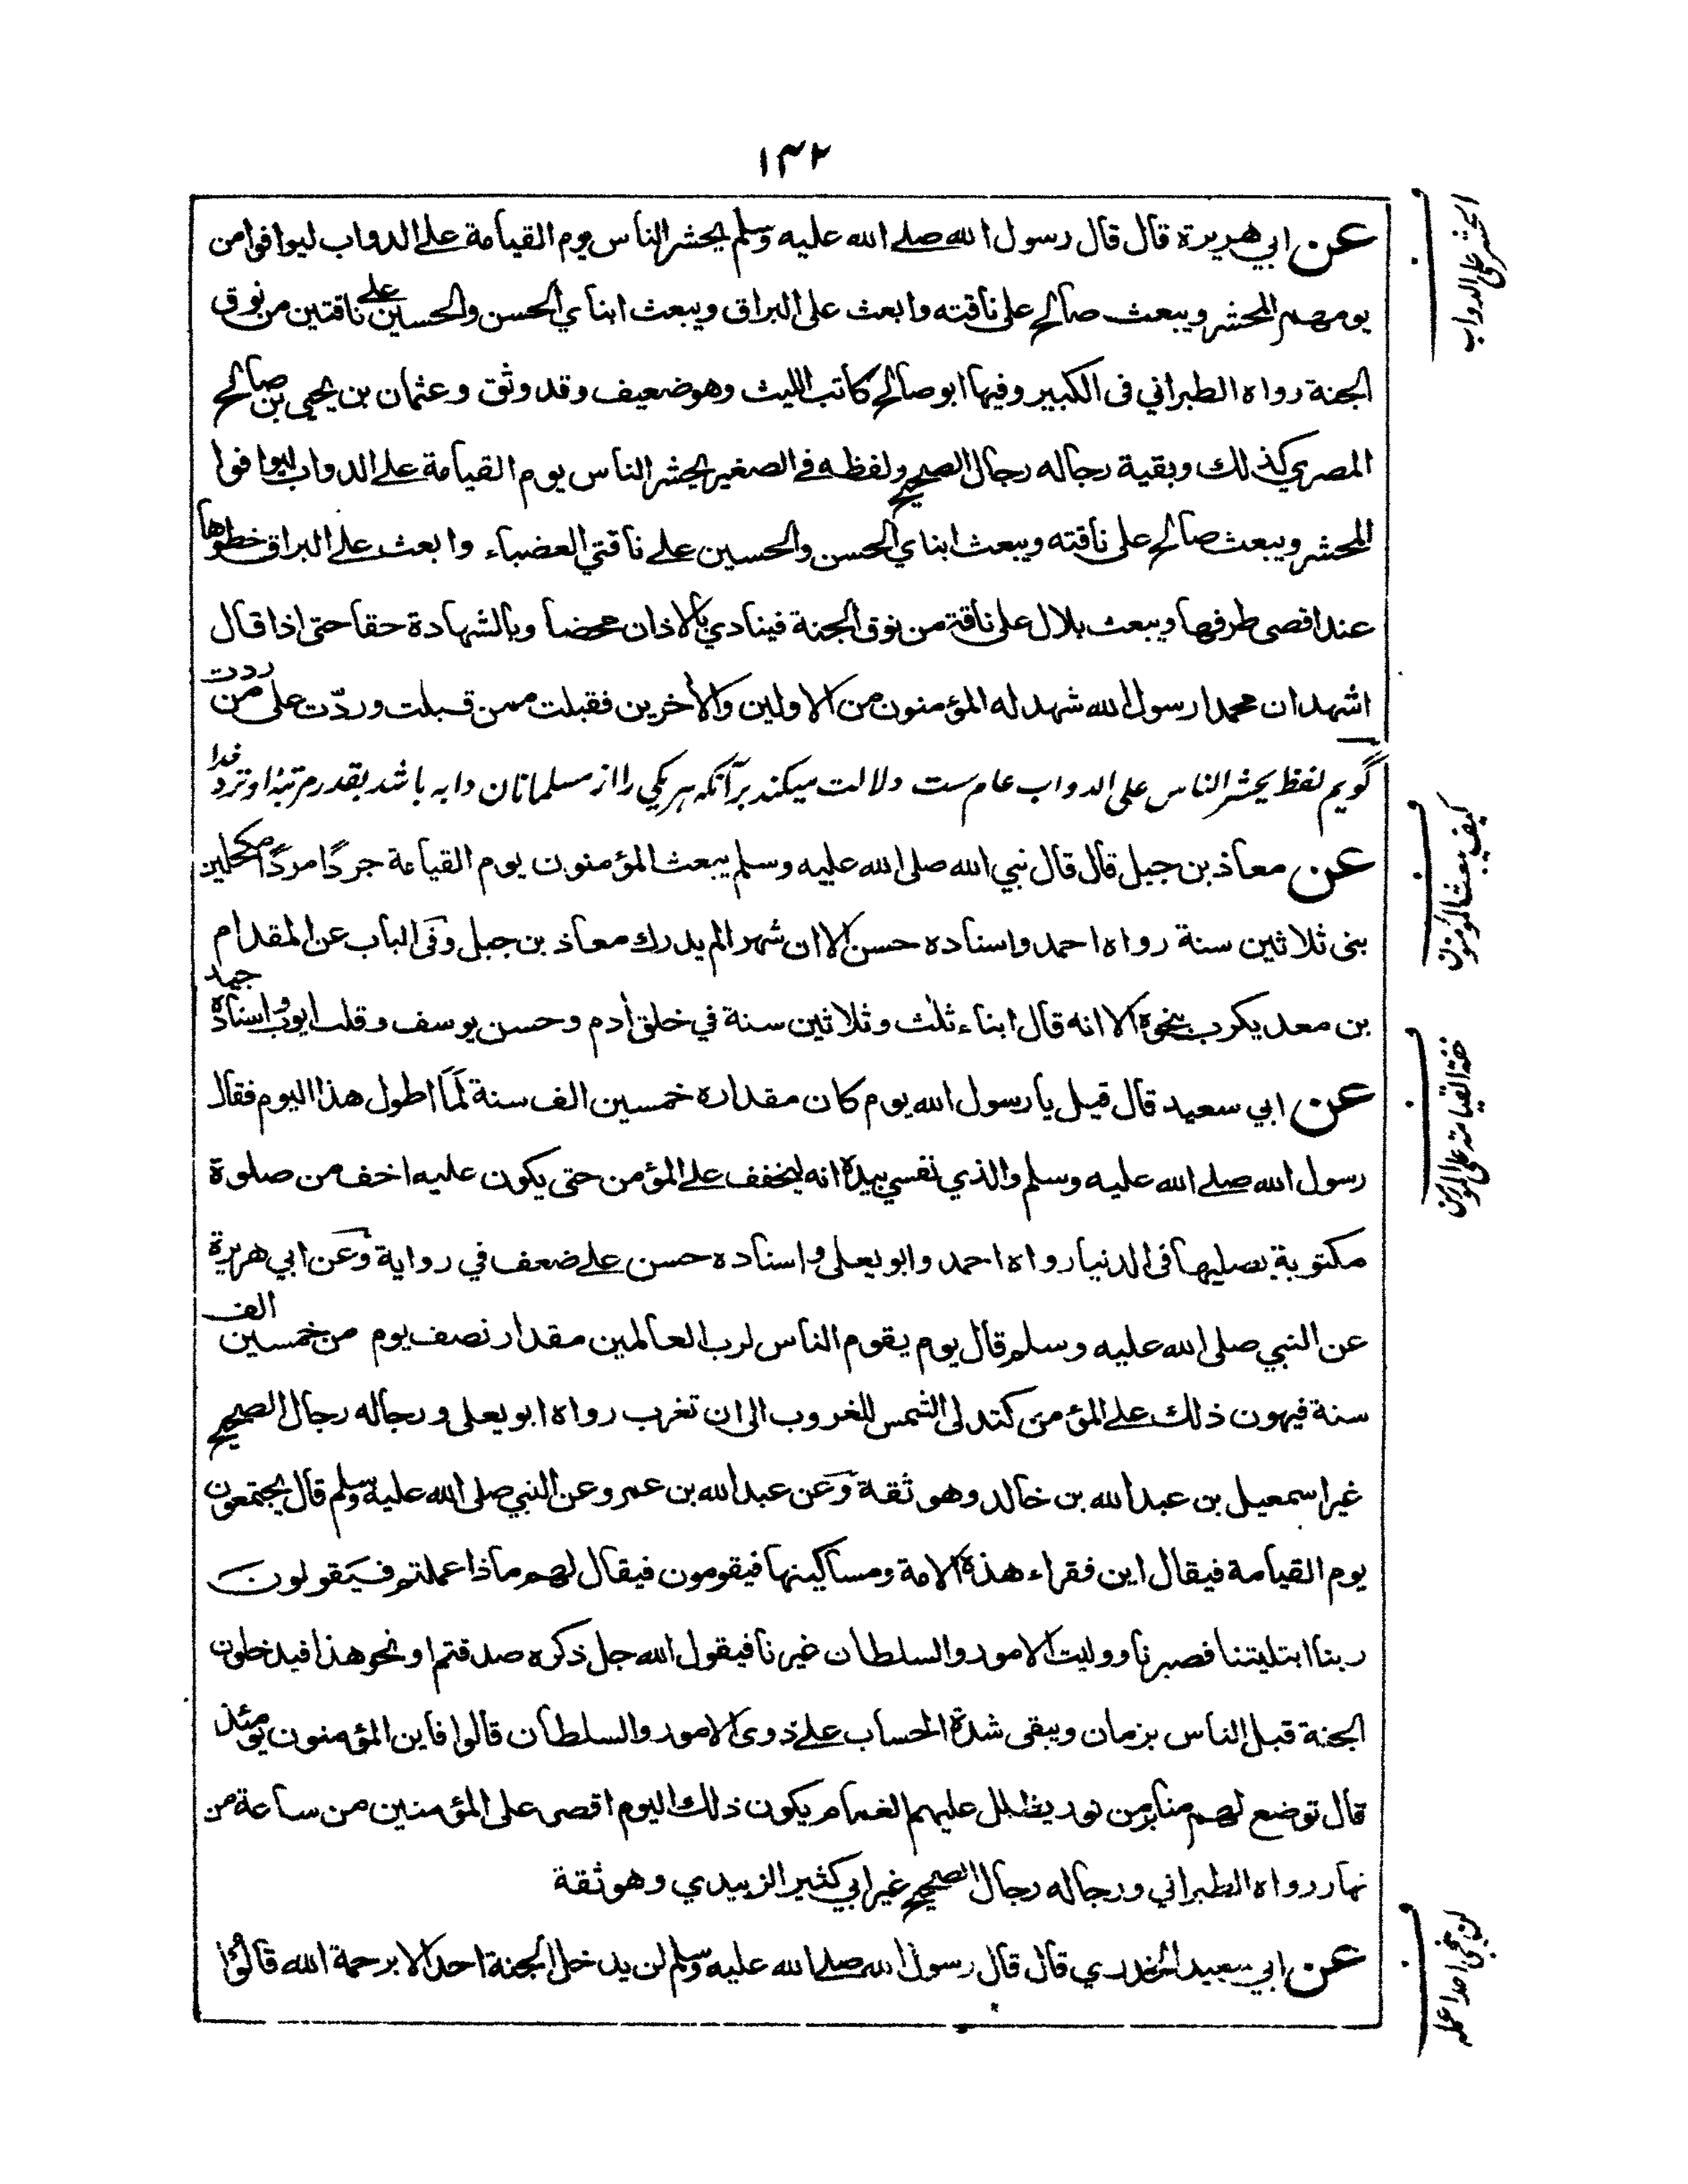 ١٣٢
عن ابي هريرة قال قال رسول الله صلے الله عليه وسلم يحشر الناس يوم القيامة علے الدواب ليوافوا من
يومهم المحشر ويبعث صالح على ناقته وابعث على البراق ويبعث ابناي الحسن والحسين علے ناقتين من نوق
الجنة رواه الطبراني فى الكبير وفيها ابو صالح كاتب الليث وهو ضعيف وقد وثق وعثمان بن يحيى بن صالح
المصري كذلك وبقية رجاله رجال الصحيح ولفظه فے الصغير يحشر الناس يوم القيامة علے الدواب ليوافوا
المحشر ويبعث صالح على ناقته ويبعث ابناي الحسن والحسين علے ناقتي العضباء وابعث علے البراق خطوها
عند اقصى طرفها ويبعث بلال على ناقة من نوق الجنة فينادي بالاذان محضا وبالشهادة حقا حتى اذا قال
اشهد ان محمدا رسول الله شهد له المؤمنون من الاولين والأخرين فقبلت ممن قبلت وردّت على من ردت
گويم لفظ يحشر الناس على الدواب عام ست دلالت ميكند برآنكه هر يكي را از مسلمانان دابه باشد بقدر مرتبهٔ او نزد خدا
عن معاذ بن جبل قال قال نبي الله صلى الله عليه وسلم يبعث المؤمنون يوم القيامة جردًا مردًا مكحلين
بنى ثلاثين سنة رواه احمد واسناده حسن الا ان شهرا لم يدرك معاذ بن جبل وفى الباب عن المقدام
بن معديكرب بنحوه الا انه قال ابناء ثلث وثلاثين سنة في خلق أدم وحسن يوسف وقلب ايوب واسناده جيد
عن ابي سعيد قال قيل يا رسول الله يوم كان مقداره خمسين الف سنة لَمَا اطول هذا اليوم فقال
رسول الله صلے الله عليه وسلم والذي نفسي بيده انه ليخفف علے المؤمن حتى يكون عليه اخف من صلوة
مكتوبة يصليها فى الدنيا رواه احمد وابو يعلى واسناده حسن علے ضعف في رواية وعن ابي هريرة
عن النبي صلى الله عليه وسلم قال يوم يقوم الناس لرب العالمين مقدار نصف يوم من خمسين الف
سنة فيهون ذلك علے المؤمن كتدلى الشمس للغروب الى ان تغرب رواه ابو يعلى ورجاله رجال الصحيح
غير اسمعيل بن عبد الله بن خالد وهو ثقة وعن عبد الله بن عمرو عن النبي صلى الله عليه وسلم قال يجتمعون
يوم القيامة فيقال اين فقراء هذه الامة ومساكينها فيقومون فيقال لهم ماذا عملتم فيقولون
ربنا ابتليتنا فصبرنا ووليت الامور والسلطان غيرنا فيقول الله جل ذكره صدقتم او نحو هذا فيدخلون
الجنة قبل الناس بزمان ويبقى شدة الحساب علے ذوى الامور والسلطان قالوا فاين المؤمنون يومئذ
قال توضع لهم منابر من نور يظلل عليهم الغمام يكون ذلك اليوم اقصر على المؤمنين من ساعة من
نهار رواه الطبراني ورجاله رجال الصحيح غير ابي كثير الزبيدي وهو ثقة
عن ابي سعيد الخدري قال قال رسول الله صلے الله عليه وسلم لن يدخل الجنة احد الا برحمة الله قالوا
الحشر على الدواب
كيف يبعث المؤمنون
خفة القيامة على المؤمن
لن ينجي احدا عمله